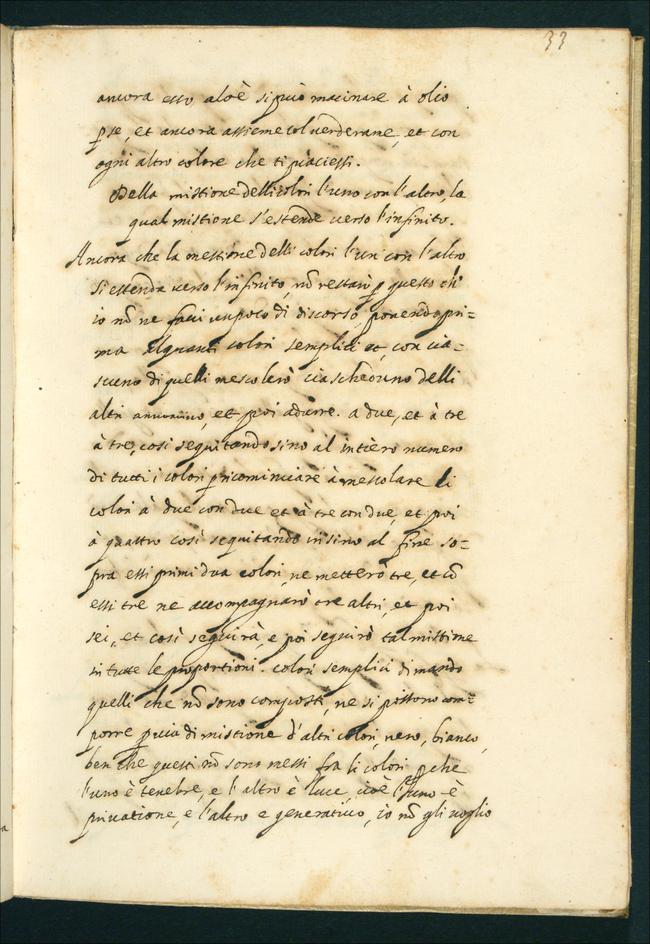 33
ancora esso aloè si può macinare à olio
p se, et ancora assieme col verderame, et con
ogni altro colore che ti piaciessi.
Della mistione delli colori l'uno con l'altro, la
qual mistione s'estende verso l'infinito.
Ancora che la mestione delli colori l'un con l'altro
si estenda verso l'infinito, nō restarò p questo ch'
io nō ne facci un poco di discorso, ponendo pri=
ma alquanti colori semplici et, con cia=
scuno di quelli mescolerò ciascheduno delli
altri, et poi adurre. a due, et à tre
à tre, così seguitando sino al intiero numero
di tutti i colori pricominciare à mescolare li
colori à due con due et à tre con due, et poi
à quattro così seguitando insino al fine so=
pra essi primi dua colori, ne metterò tre, et cō
essi tre ne accompagnarò tre altri, et poi
sei, et così seguirà, e poi seguirò tal mistione
in tutte le proportioni. colori semplici dimando
quelli che nō sono composti, ne si possono com=
porre p via di mistione d'altri colori, nero, bianco,
ben che questi nō sono messi fra li colori pche
l'uno è tenebre, e l'altro è luce, cioè l'uno è
privatione, e l'altro e generativo, io nō gli voglio